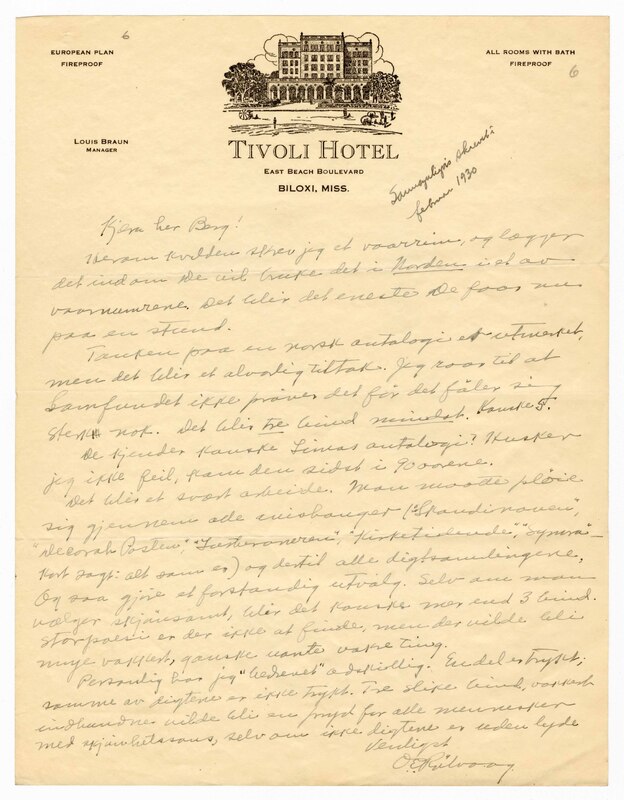 6
EUROPEAN PLAN
FIREPROOF
ALL ROOMS WITH BATH
FIREPROOF
6
LOUIS BRAUN
MANAGER
TIVOLI HOTEL
EAST BEACH BOULEVARD
BILOXI, MISS.
februar 1930
Kjera her Berg!
kvelden skrev jeg et vaarrim, og lægger
det ind om De vil bruke det i Norden i et av
vaarnumrene. Det blir det eneste De faar nu
paa en stund.
Tanken paa en norsk antologi er utmerket,
men det blir et alvorlig tiltak. Jeg raar til at
Samfundet ikke prøver det før det føler sig
sterk nok. Det blir tre bind mindst. Kanske 5.
De kjender kanske Simas antologi? Husker
jeg ikke feil, kom den sidst i 90 aarene.
Det blir et svært arbeide. Man maate pløie
sig gjennem alle ("Skandinaven",
"Decorah Posten", "Lutheraneren", "Kirketidende", "Symra" -
kort sagt: alt som er) og dertil alle digtsamlingene.
Og saa gjøre et forstandig utvalg. Selv om man
vælger skjønsamt, blir det kanske mer end 3 bind.
Storpoesi er der ikke at finde, men der vilde bli
mye vakkert, ganske vakre ting.
Personlig har jeg "bedrevet" adskillig. En del er trykt;
somme av digtene er ikke trykt. Tre slike bind, vakkert
indbundne vilde bli en pryd for alle mennesker
med skjønhetssans, selv om ikke digtene er uden lyde
Venligst
O. E. Rølvaag